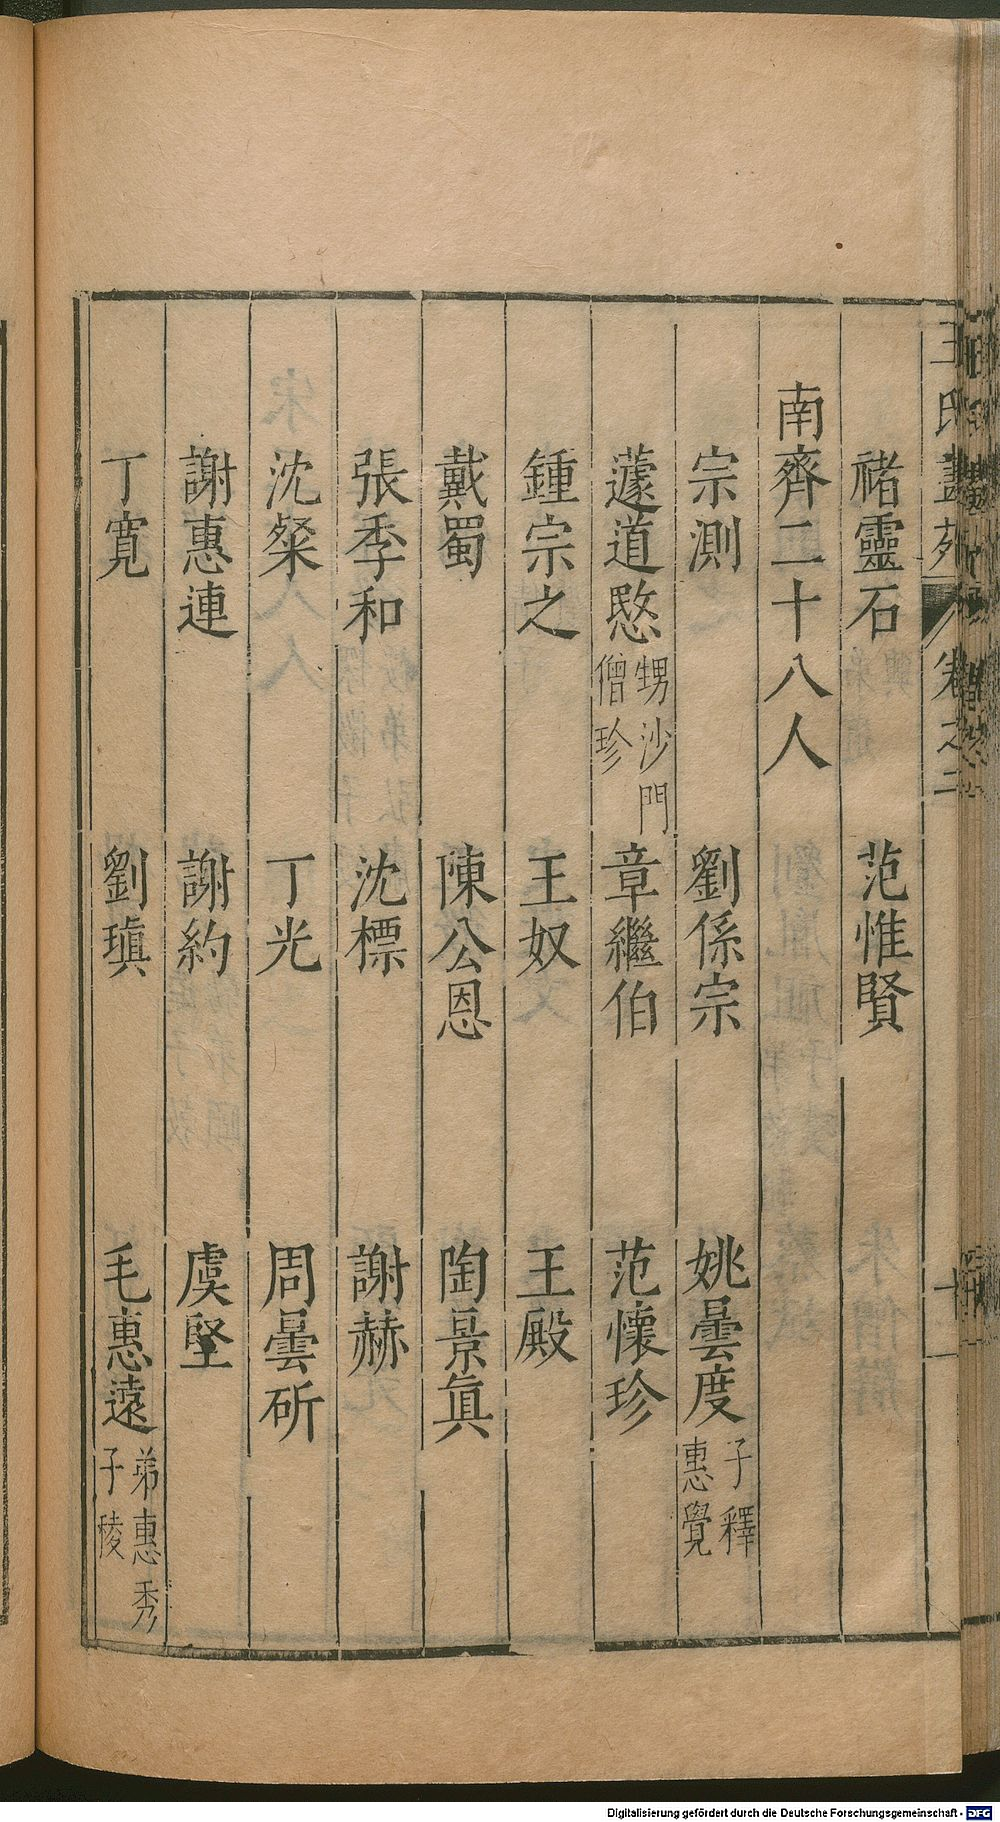 王氏畫苑 卷之二 十一
褚靈石 范惟賢
南齊二十八人
宗測 劉係宗 姚曇度 子釋惠覺
蘧道愍 甥沙門僧珍 章繼伯 范懷珍
鍾宗之 王奴 王殿
戴蜀 陳公恩 陶景眞
張季和 沈標 謝赫
沈粲 丁光 周曇硏
謝惠連 謝約 虞堅
丁寬 劉瑱 毛惠遠 弟惠秀子稜
Digitalisierung gefördert durch die Deutsche Forschungsgemeinschaft - DFG